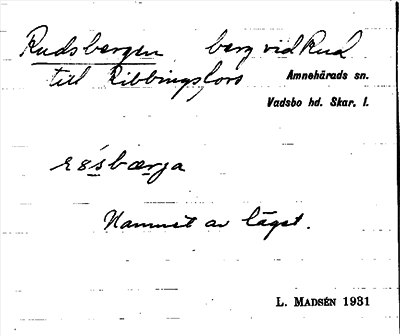 Rudsbergen berg vid Rud
till Ribbingsfors Amnehärads sn.
Vadsbo hd. Skar. l.
Namnet av lägst.
L. MADSÉN 1931